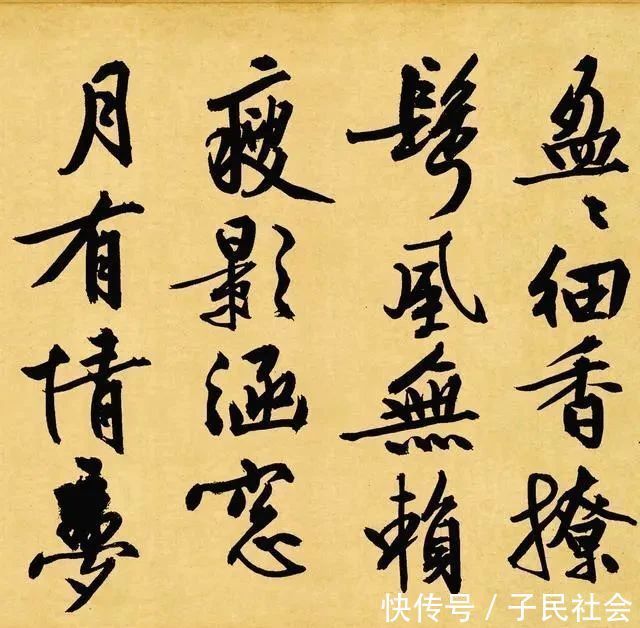 盈〻細香撩
鬢風無賴
瘦影涵窓
月有情夢
快传号 / 子民社会